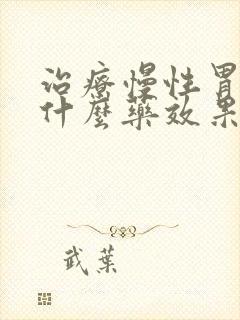 治療慢性胃
什麼藥效果
武葉